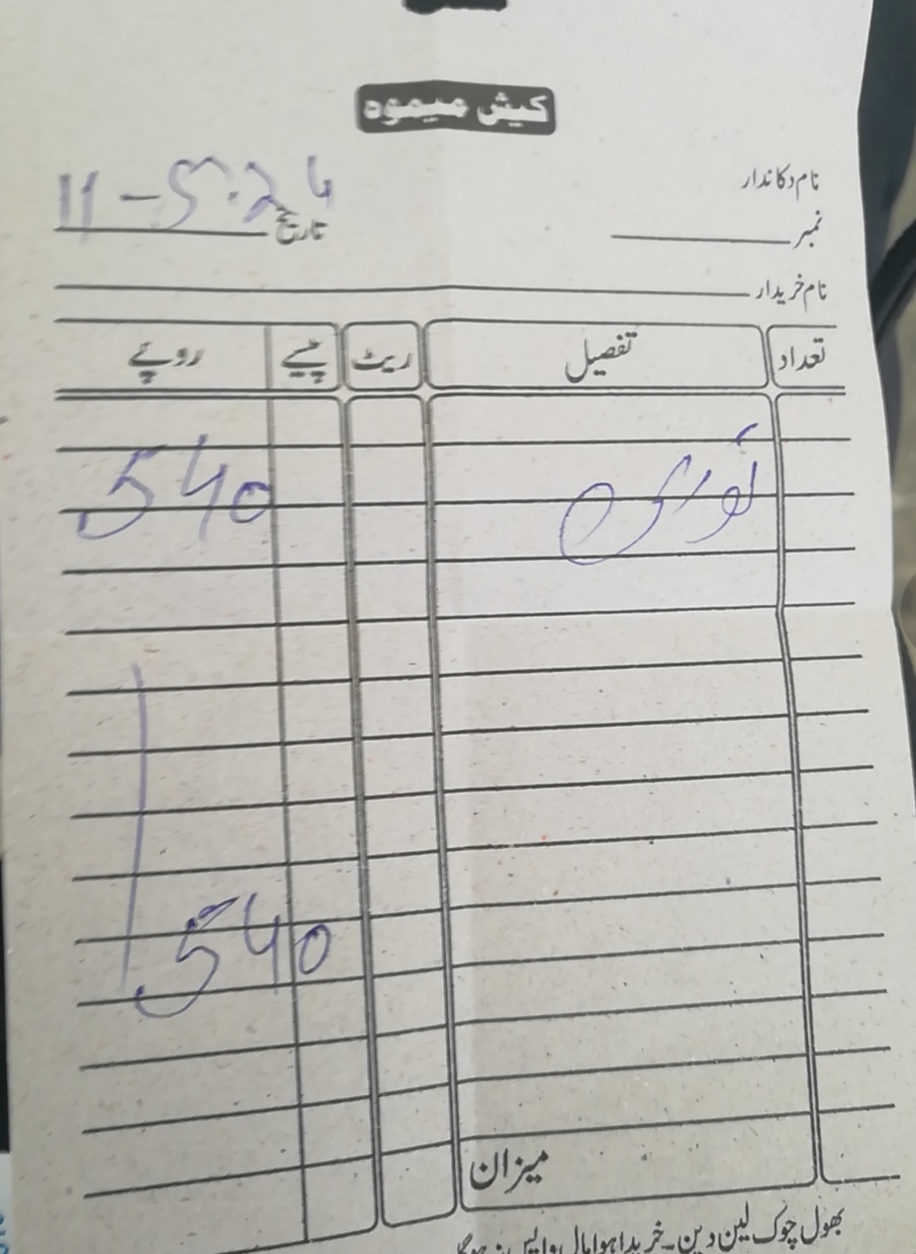 کیش میمو
نام دکاندار
نمبر تاریخ 11-5-24
نام خریدار
تعداد تفصیل ریٹ پیسے روپے
توری 540
540
میزان
بھول چوک لین دین۔ خریدا ہوا مال واپس نہ ہوگا